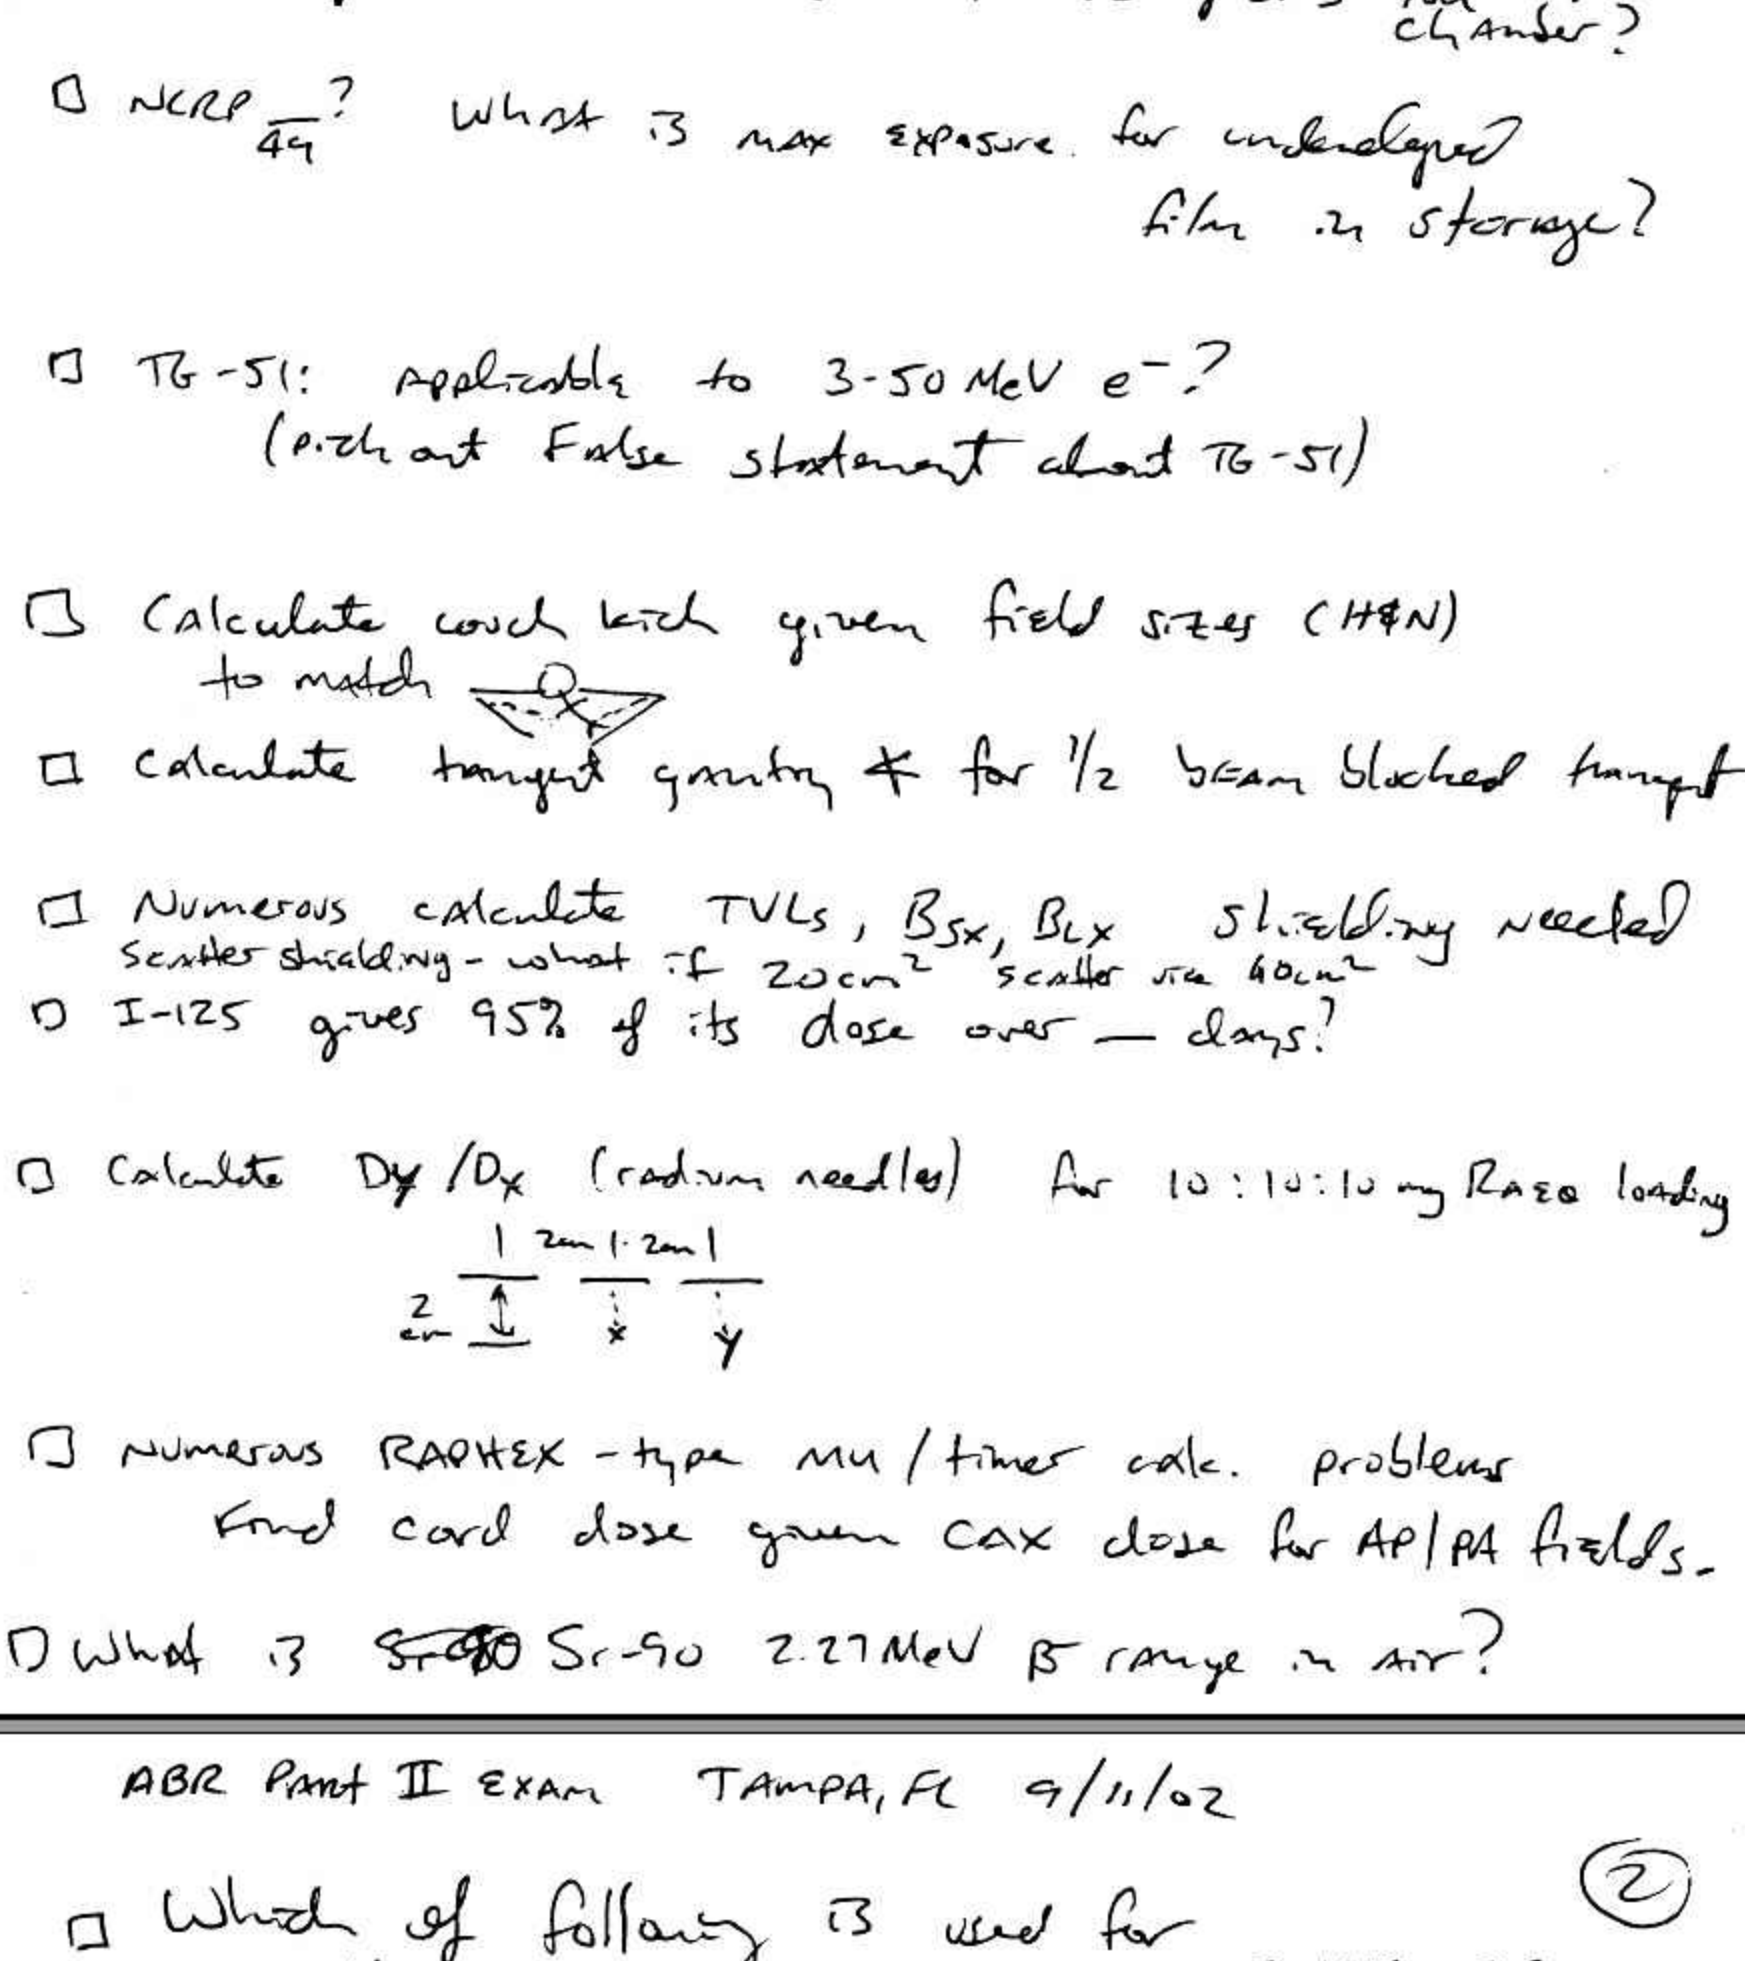 chamber?
□ NCRP 49? What is max exposure for undeveloped
film in storage?
□ TG-51: Applicable to 3-50 MeV e⁻?
(pick out False statement about TG-51)
□ Calculate couch kick given field sizes (H&N)
to match
□ Calculate tangent gantry ∢ for 1/2 beam blocked tangent
□ Numerous calculate TVLs, Bsx, BLx shielding needed
scatter shielding - what if 20cm² scatter vice 40cm²
□ I-125 gives 95% of its dose over — days?
□ Calculate Dy/Dx (radium needles) for 10:10:10 mg Ra EQ loading
| 2cm | 2cm |
2 cm x y
□ Numerous RAPHEX-type MU/timer calc. problems
Find cord dose given CAX dose for AP/PA fields.
□ What is Sr-90 2.27 MeV β⁻ range in air?
ABR Part II Exam TAMPA, FL 9/11/02
2
□ Which of following is used for